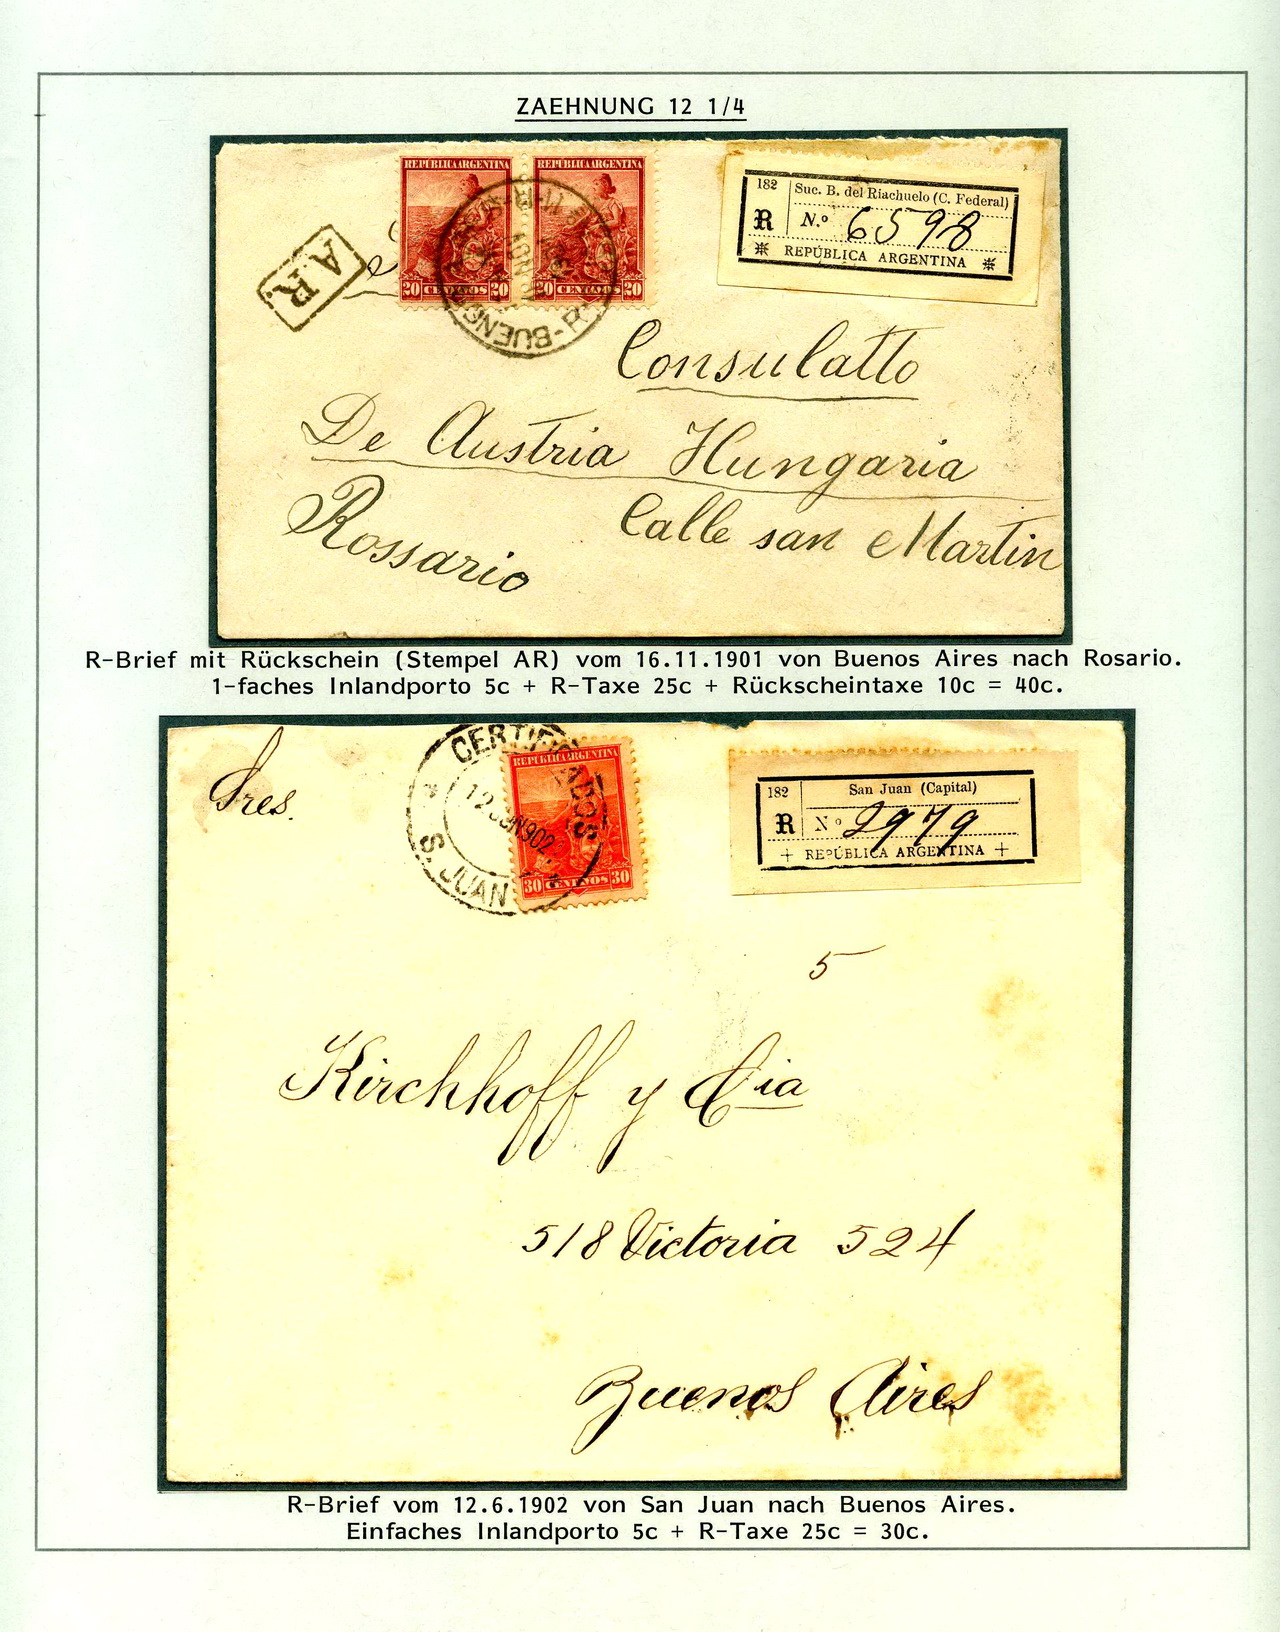 ZAEHNUNG 12 1/4
REPUBLICA ARGENTINA REPUBLICA ARGENTINA
20 CENTAVOS 20 20 CENTAVOS 20
BUENOS
A.R.
182 Suc. B. del Riachuelo (C. Federal)
R N.º 6598
REPÚBLICA ARGENTINA
Consulatto
De Austria Hungaria
Calle san Martin
Rossario
R-Brief mit Rückschein (Stempel AR) vom 16.11.1901 von Buenos Aires nach Rosario.
1-faches Inlandporto 5c + R-Taxe 25c + Rückscheintaxe 10c = 40c.
Sres.
CERTIFICADOS
12 JUN 902
S. JUAN
REPUBLICA ARGENTINA
30 CENTAVOS 30
182 San Juan (Capital)
R Nº 2979
+ REPÚBLICA ARGENTINA +
5
Kirchhoff y Cia
518 Victoria 524
Buenos Aires
R-Brief vom 12.6.1902 von San Juan nach Buenos Aires.
Einfaches Inlandporto 5c + R-Taxe 25c = 30c.